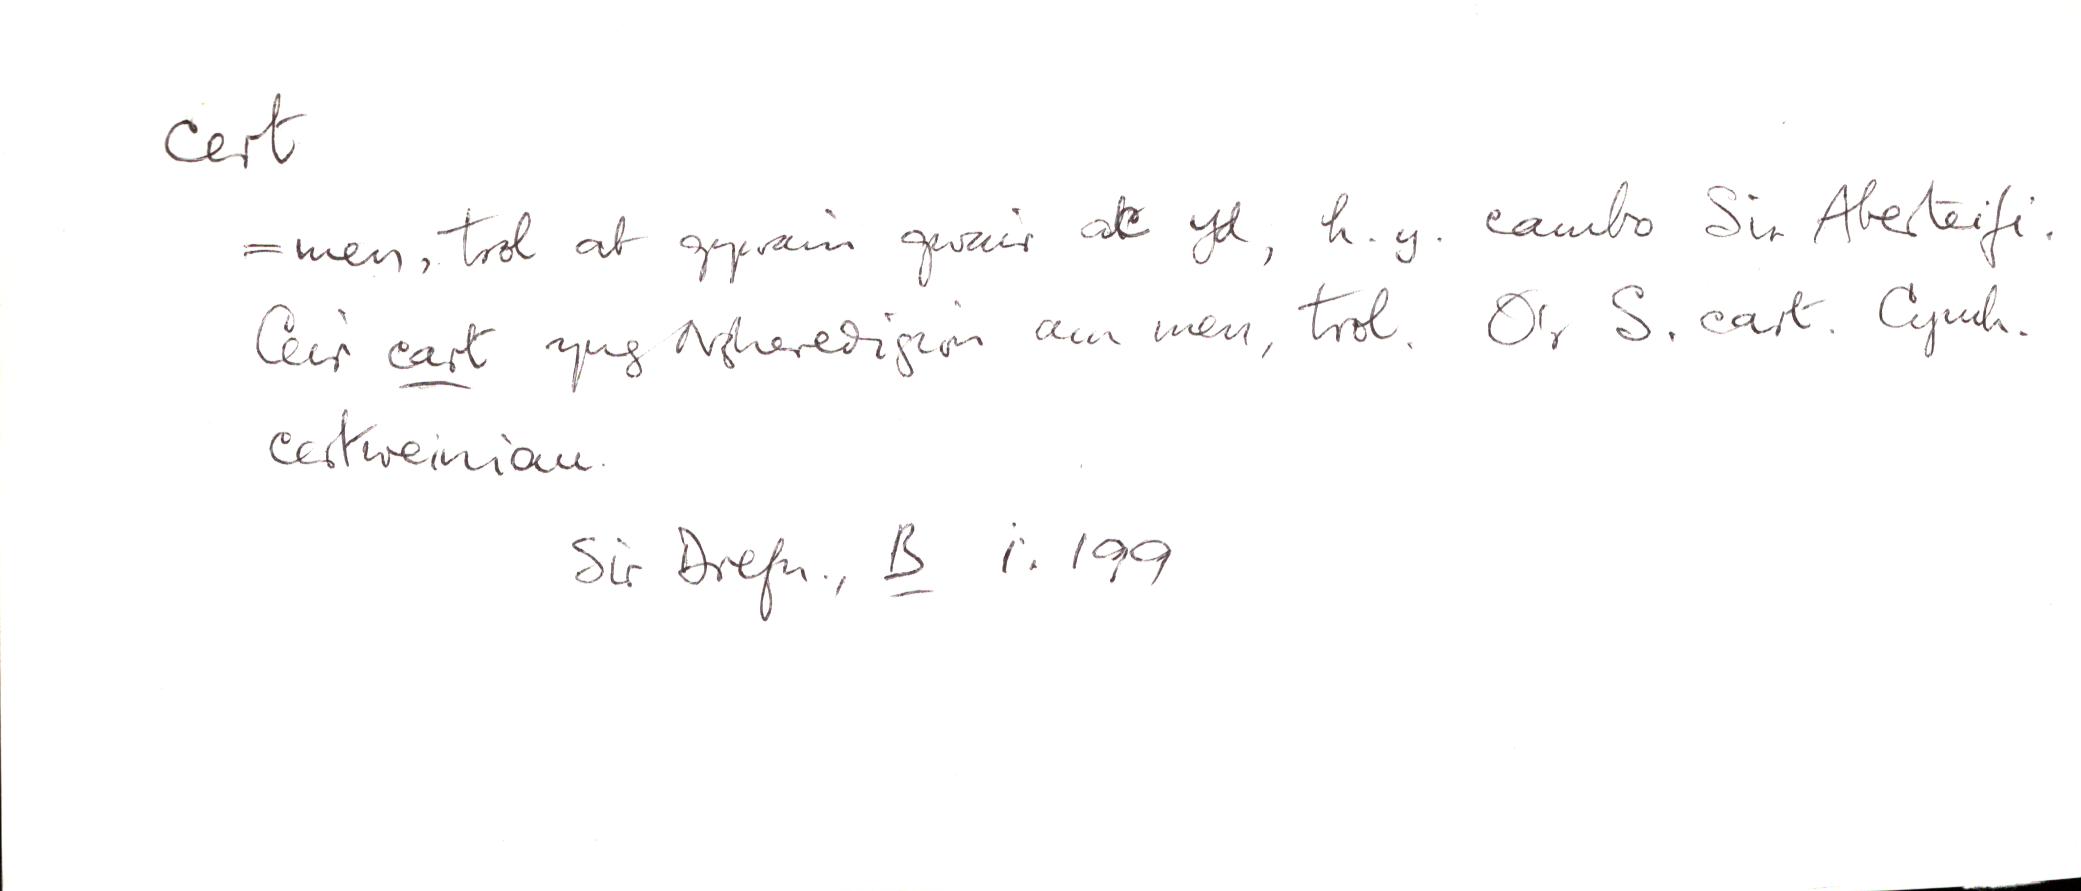 cert
= men, trol at gywain gwair ac yd, h.y. cambo Sir Aberteifi.
Ceir cart yng Ngheredigion am men, trol. O'r S. cart. Cymh.
certweiniau.
Sir Drefn., B i. 199